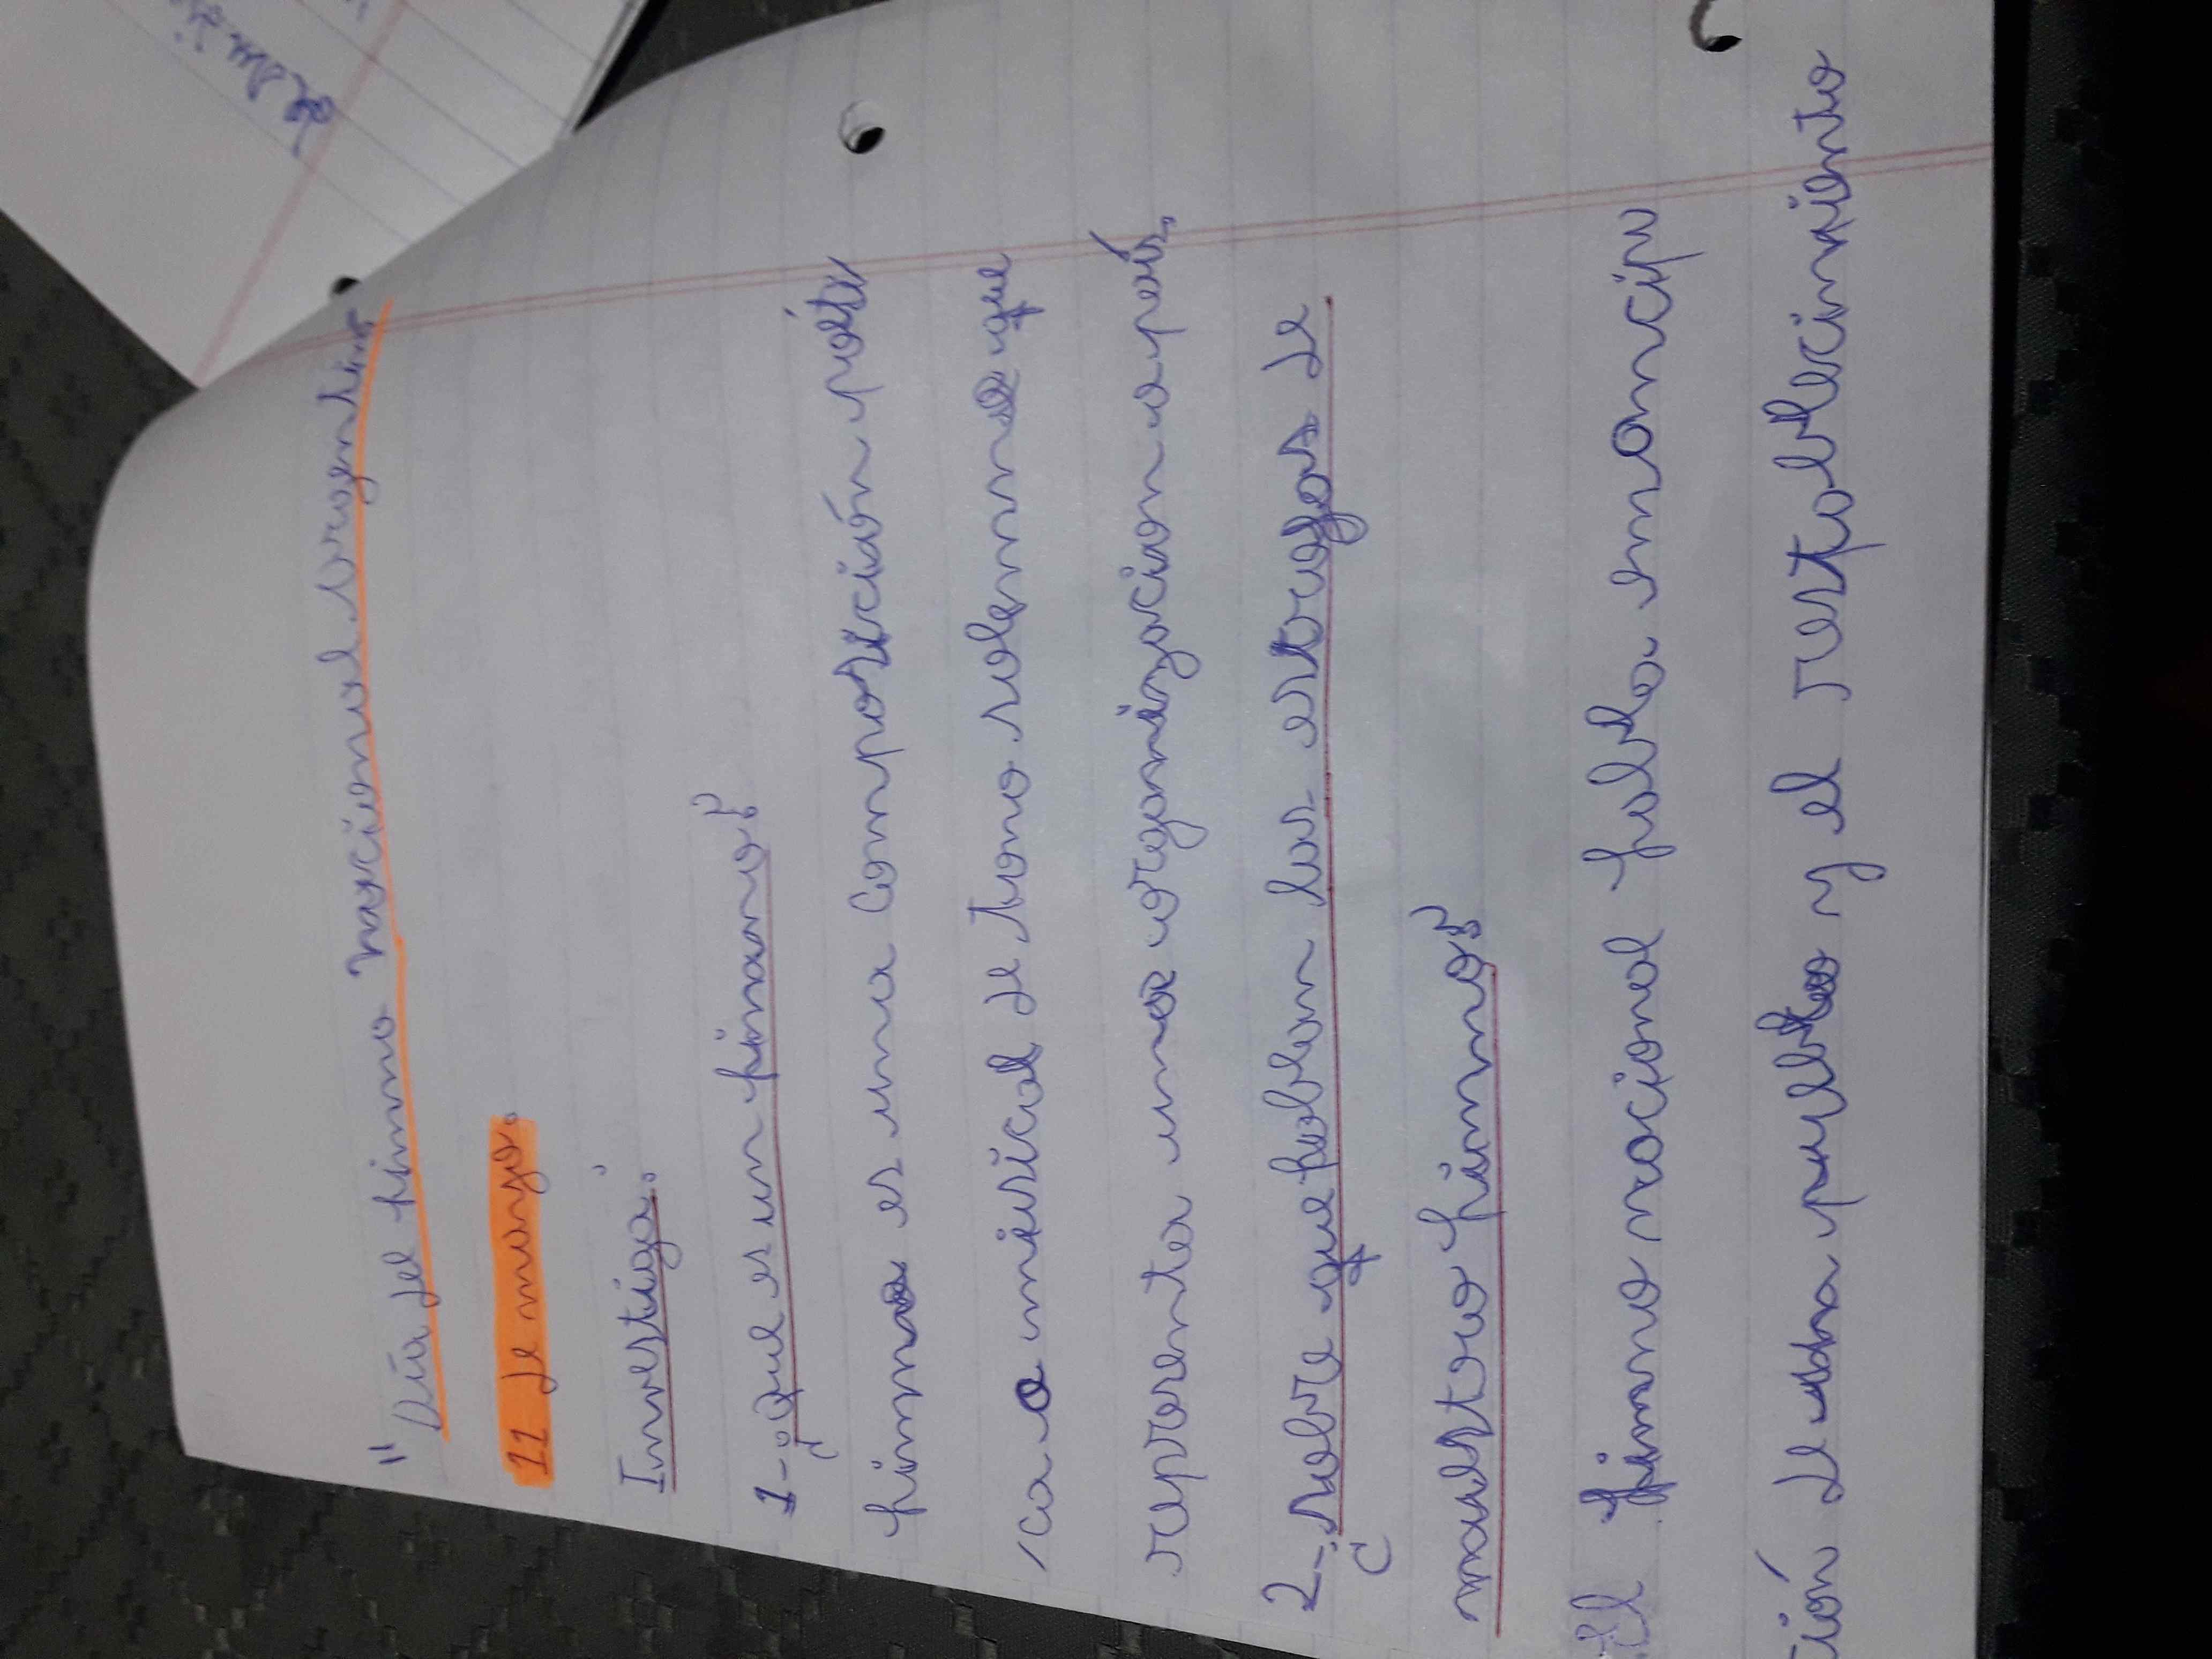 "Día del himno nacional argentino
11 de mayo.
Investiga.
1-¿Que es un himano?
himno es una composición poéti
ca o músical de tono solemne que
reprenta una organizacion o país,
2-¿sobre que hablan las estrofas de
nuestro himno?
El himno nacional habla emancipa
ción de un pueblo y el restablecimiento